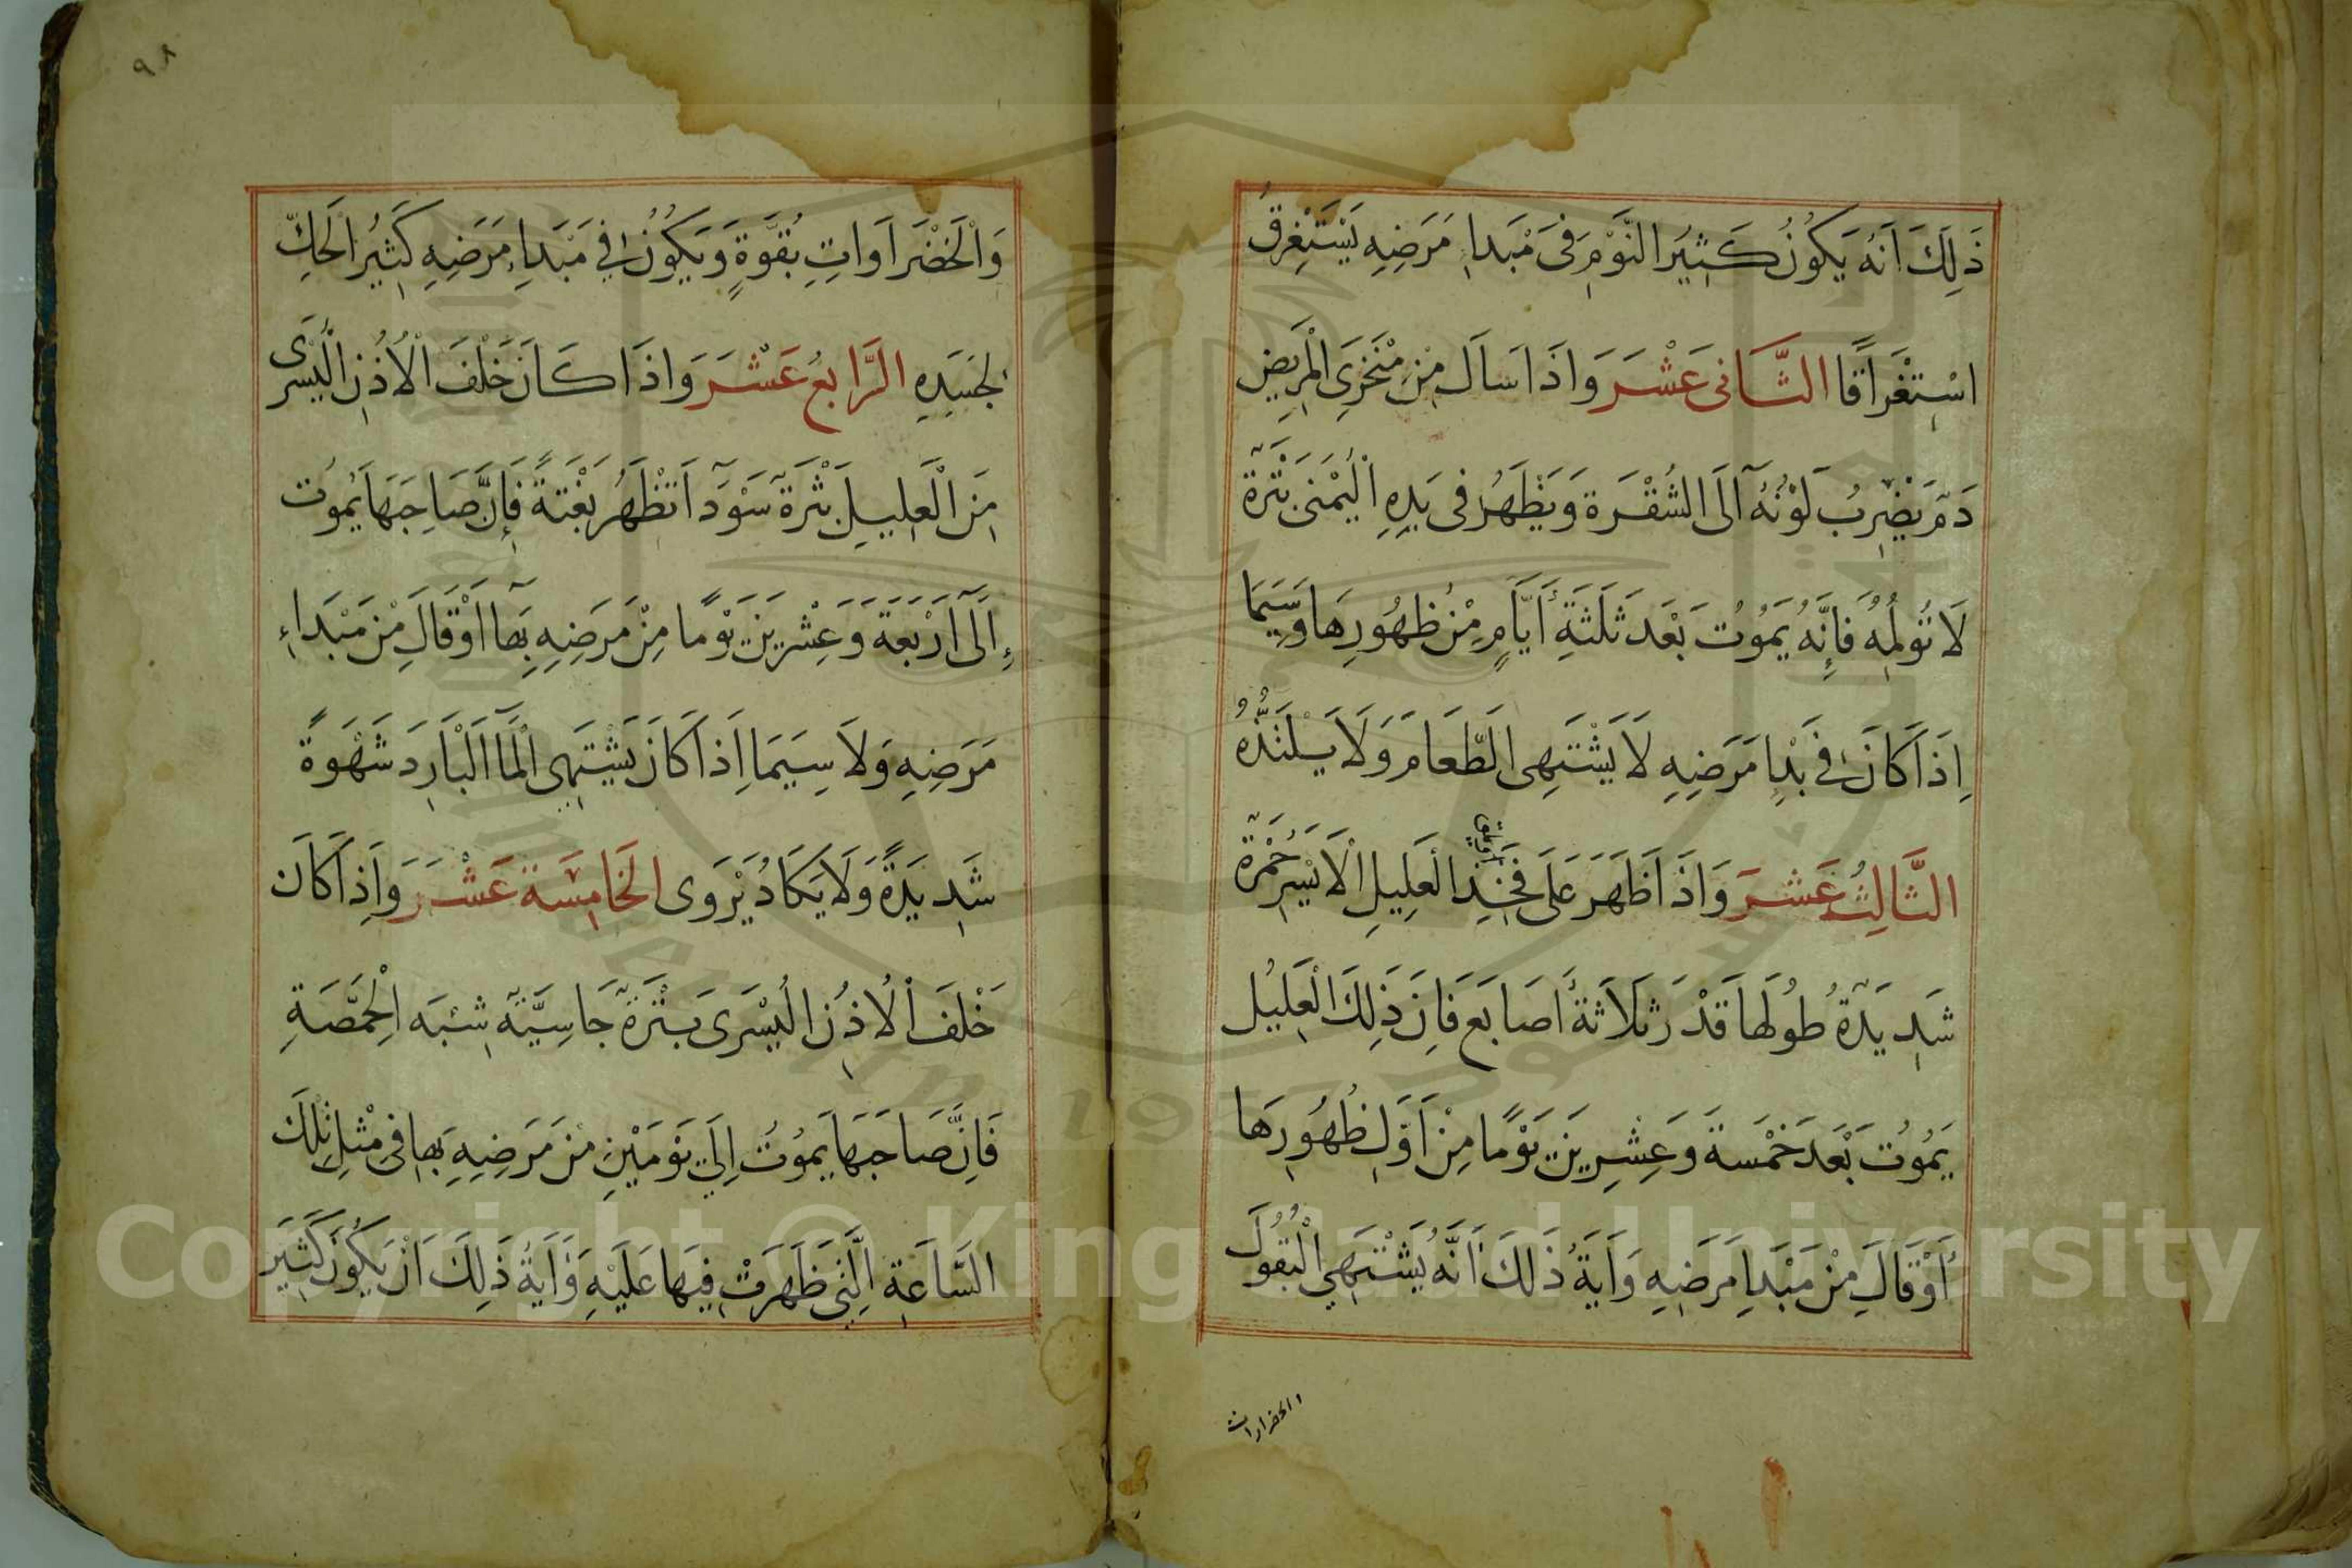 ذَلِكَ اَنَهُ يَكُونُ كَثِيَر النَّوْمِ فِى مَبْدَاءِ مَرَضِهِ يَسْتَغِرقُ
اسْتِغْرَاقًا الثَّانى عَشْرَ وَاذَا سَالَ مِنْ مَنْخَرَىِ الْمَرِيضِ
دَمٌ يَضْرِبُ لَوْنُهُ اَلَى الشُقْرَة وَيَظْهَرُ فى يَدِهِ الْيُمْنَى بَثْرَةٌ
لَا تُولِمُهُ فَاِنَّهُ يَمُوُتُ بَعْدَ ثَلَثَةِ أَيَّامٍ مِنْ ظُهُورِهَا وَسِيَمَا
اِذَا كَانَ فِى بَدِا مَرَضِهِ لَا يَشْتَهِى الَطَّعَامَ وَلَا يَسْلَتَذُّهُ
الثَّالِثُ عَشَرَ وَاذَا ظَهَرَ عَلَى فَخِذِ الْعَلِيلِ الْاَيْسَرِ حُمْرَةٌ
شَدِيدَةٌ طُولُهَا قَدْرَ ثلَاثَةُ أَصَابعَ فَاِنَ ذَلِكَ الْعَلِيُل
يَمُوُت بَعْدَ خَمْسَة وَعِشْرِينَ يَوْمًا مِنْ اَوَّلِ ظُهُورِهَا
أَوْقَالَ مِنْ مَبْدَاِ مَرَضِهِ وَايَةُ ذَلَكَ اَنَّهُ يَشْتَهِي الْبُقُولَ
الخضرارات
٩٨
وَالْخَضْرَاوَاتِ بُقوَّةٍ وَيَكُونُ فِي مَبْدَاءِ مَرَضِهِ كَثِيُر الَحكِّ
لجَسَدِهِ الَرَّابعُ عَشْرَ وَاذَا كَانَ خَلْفَ الْاُذُنِ الْيُسْرَى
مِنَ الْعَلِيلِ بَثْرَةٌ سَوْدَآ اتَظْهَرُ بَغْتَةً فَاِنَّ صَاحِبَهَا يُموُت
اِلَى اَرْبَعَةَ وَعِشْرِينَ يَوْمًا مِنْ مَرَضِهِ بِهَا اَوْقَالَ مِنْ مَبْدَاءِ
مَرَضِهِ وَلَا سِيَمَا اِذَا كَانَ يَشْتَهِي الْمَآ الْبَارِدَ شَهْوَةً
شَدِيدَةً وَلَا يَكَادُ يَرْوَى الخَامِسَة عَشْرَ وَاِذَا كَانَ
خَلْفَ الْاُذُنِ الْيُسْرَى بَثْرَةٌ جَاسِيَّةٌ شِبْهَ الِحْمَّصَةِ
فَاِنَّ صَاحَبَهَا يَموُتُ اِلَي يَوْمَيْنِ مِنْ مَرَضِهِ بِهَا فِى مْثلِ تِلْكَ
السَّاعَةِ الَّتِى ظَهَرَتْ فِيهَا عَلَيْهِ وَايَةُ ذَلِكَ اَنْ يَكُوَنَ كَثِيَر